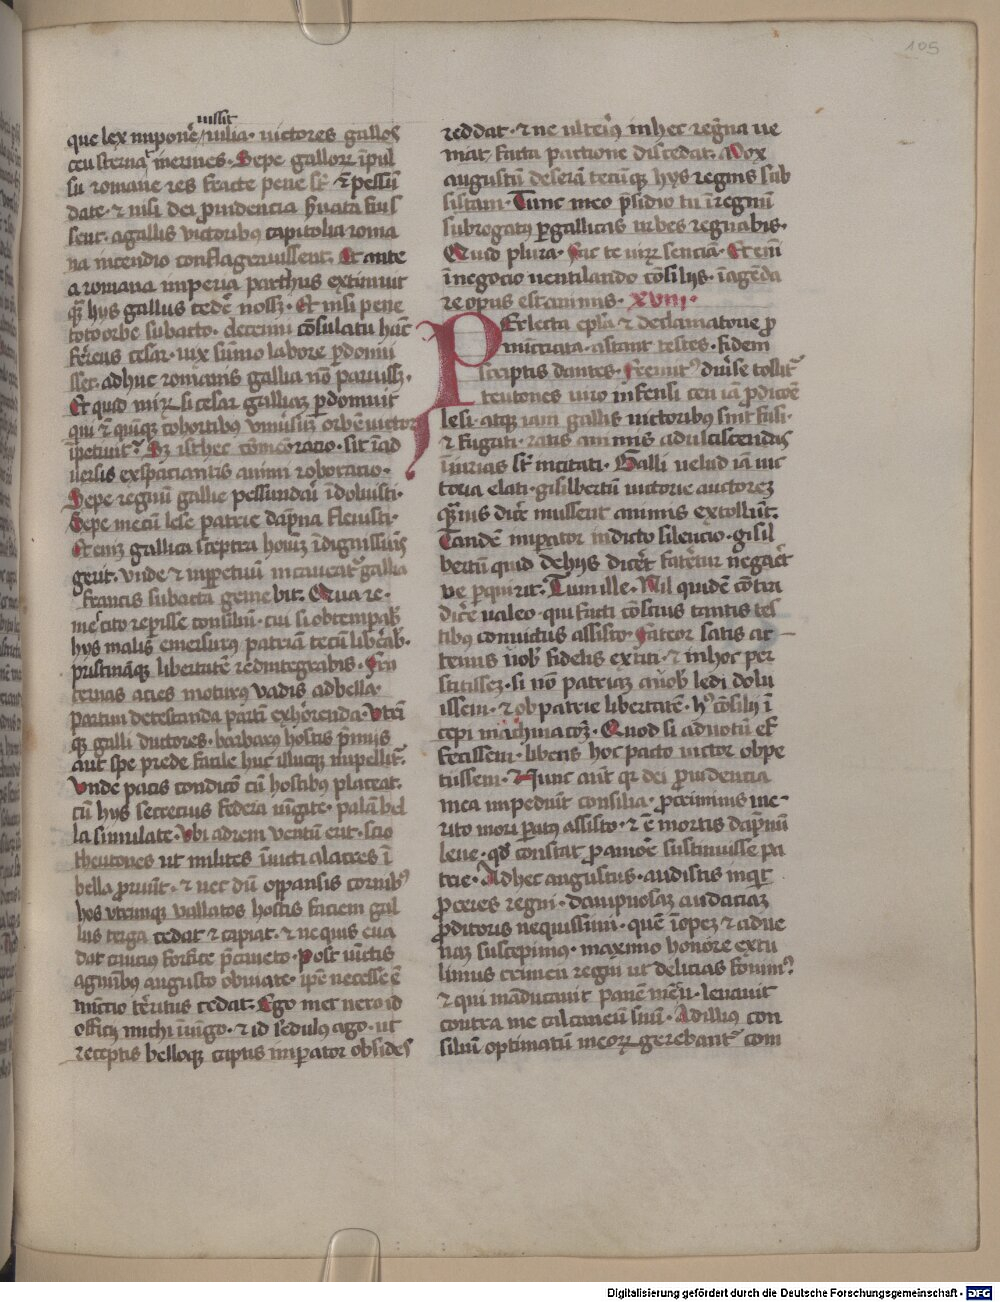 105
iussit
que lex impone᷒ iulia. uictores gallos
ceu sterna᷒ inermes. Sepe galloꝝ ī pul
su romane res fracte pene st̄. ⁊ pessū
date. ⁊ nisi dei puidencia
sent. a gallis uictoribꝫ capitolia roma
na incendio conflagrauissent. Et ante
a romana imperia parthus extimuit
qͣꝫ hys gallus cede᷒ nosset. Et nisi pene
toto orbe subacto. decenni cōsulatu hāc
fereus cesar. uix sūmo labore pdomui
sset. adhuc romanis gallia nō paruissꝫ.
Et quid miꝝ si cesar galliaꝫ pdomuit
qui ⁊ quinqꝫ cohortibus uniūsuꝫ orbē uictor
Sꝫ isthec cōmēoracio. sit ī ad
uersis exspaciantis animi roboracio.
Sepe regnū gallie pessundari īdoluisti.
Sepe mecū lese patrie dāpna fleuisti.
Et eniꝫ gallica sceptra hoīum īdignissimꝰ
gerit. unde ⁊ imppetuū gallia
francis subacta gemebit. Quare.
me scito repisse consiliū. cui si obtempabꝫ
hys malis emersurꝰ patriam tecū liberabꝫ.
pristinaqꝫ libertatē redintegrabis.
ternas acies moturꝰ uadis ad bella.
partim detestanda partī exhorrenda. Utrī
qꝫ galli ductores. barbarꝰ hostis pimꝰ
aut spe prede facile huc illucqꝫ impellitᷣ.
Unde pacis condicō cū hostibus placeat.
cū hys secrecius federa iūgite. palā bel
la simulate. Ubi ad rem uentū erit. scio
theutones ut milites īuicti alacres ī
bella pruūt. ⁊ nec dū oppansis cornibꝫ
hos utrimqꝫ uallatos hostis faciem gal
lus terga cedat ⁊ capiat. ⁊ ne quis eua
dat caucius forfice pcaueto. Post uictis
agminibꝫ augusto obuiate. ipē necesse ē
inueniō territus cedat. Ego met uero id
officij michi iniūgo. ⁊ id sedulus ago. ut
receptis belloqꝫ captis impator obsides
reddat. ⁊ ne ulteriꝰ in hec regna ue
niat. facta pactione discedat. Mox
augustū deserā tecumqꝫ hys regnis sub
sistam. Tunc meo psidio tu ī regnū
subrogatꝰ p gallicas urbes regnabis.
Quid plura. Fac te uiꝝ senciā. Et enī
ī negocio uentilando cōsilijs. ī agēda
re opus est animis. XVIII.
PErlecta epla ⁊ declamatorie p
nūcciata. astant testes. fidem
scriptis dantes. Fremitꝰ diuse tollitᷣ
teutones uiro infensi ceu iā pdicōe
lesi. atqꝫ iam gallis uictoribus sint fusi.
⁊ fugati. ratis animis ad ulciscendas
īiurias st̄ incitati. Galli uelud iā uic
toria elati. gisilbertū uictorie auctoreꝫ
quāuis dice᷒ mussent animis extollūt.
Tandē impator indicto silencio. gisil
bertū quid de hijs dicet fateretur negaret
ue pquirit. Tum ille. Nil quidē cōtra
dice᷒ ualeo. qui facti cōscius tantis tes
tibꝫ conuictus assisto. Fateor satis ac-
tenus uobꝫ fidelis extiti. ⁊ in hoc per
stitisseꝫ. si nō patriaꝫ a uobꝫ ledi dolu
issem. ⁊ ob patrie libertatē. hꝰ cōsilij ī
cepi machinatoꝫ. Quod si ad uotū ef
fecissem. liberis hoc pacto uictor obpe
tiissem. ⁊ Nunc aut qꝛ dei puidencia
mea impediūt consilia. proximius me-
rito mori paratus assisto. ⁊ ē mortis dāpnū
leue. qd̄ constat p amore sustinuisse pa
trie. Ad hec augustus. audistis inqͥt
proceres regni. dampnosaꝫ audaciaꝫ
pditoris nequissimi. quē īopeꝫ ⁊ adue
naꝫ suscepimus. maximo honore extu
limus
⁊ qui māducauit panē meū. leuauit
contra me calcaneū suū. Ad illius con
siliū optimatū meoꝝ gerebantᷣ com
Digitalisierung gefördert durch die Deutsche Forschungsgemeinschaft - DFG